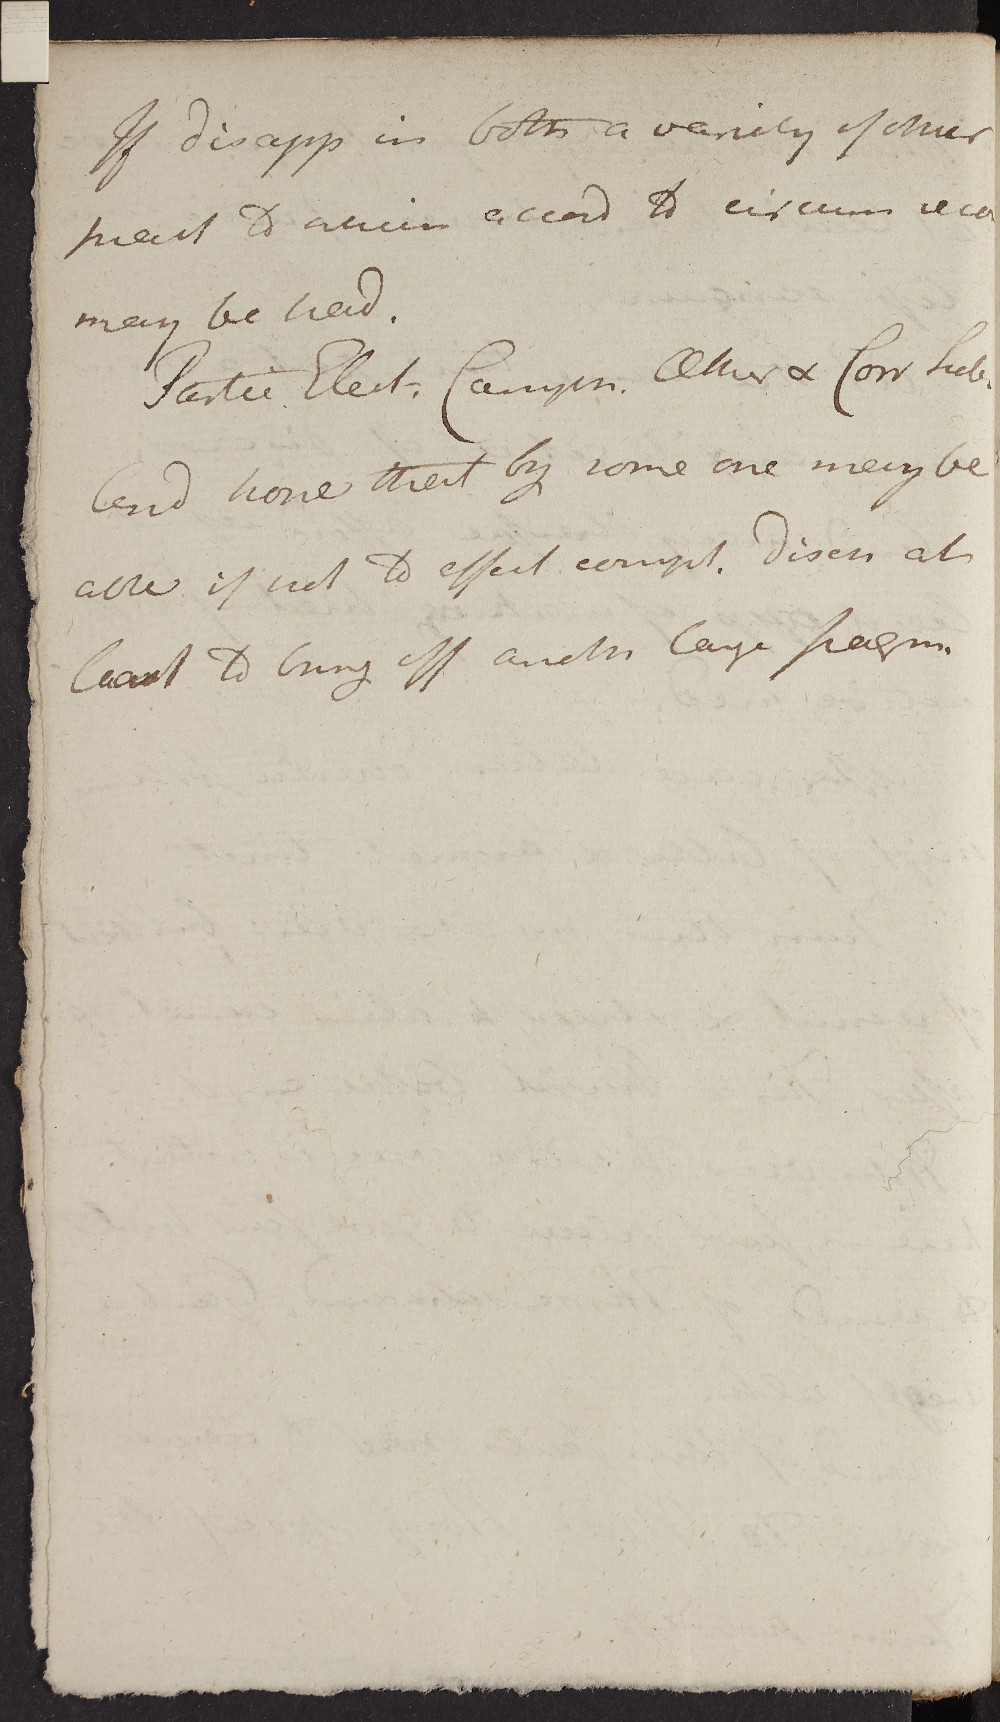 If disapp in both a variety of other
means to which accord to circum reco
may be had.
Partic. Elect. Camph. Æther & Corr Sub.
and hope that by some one may be
able if not to effect compl. Discn at
least to bring off another large fragm.